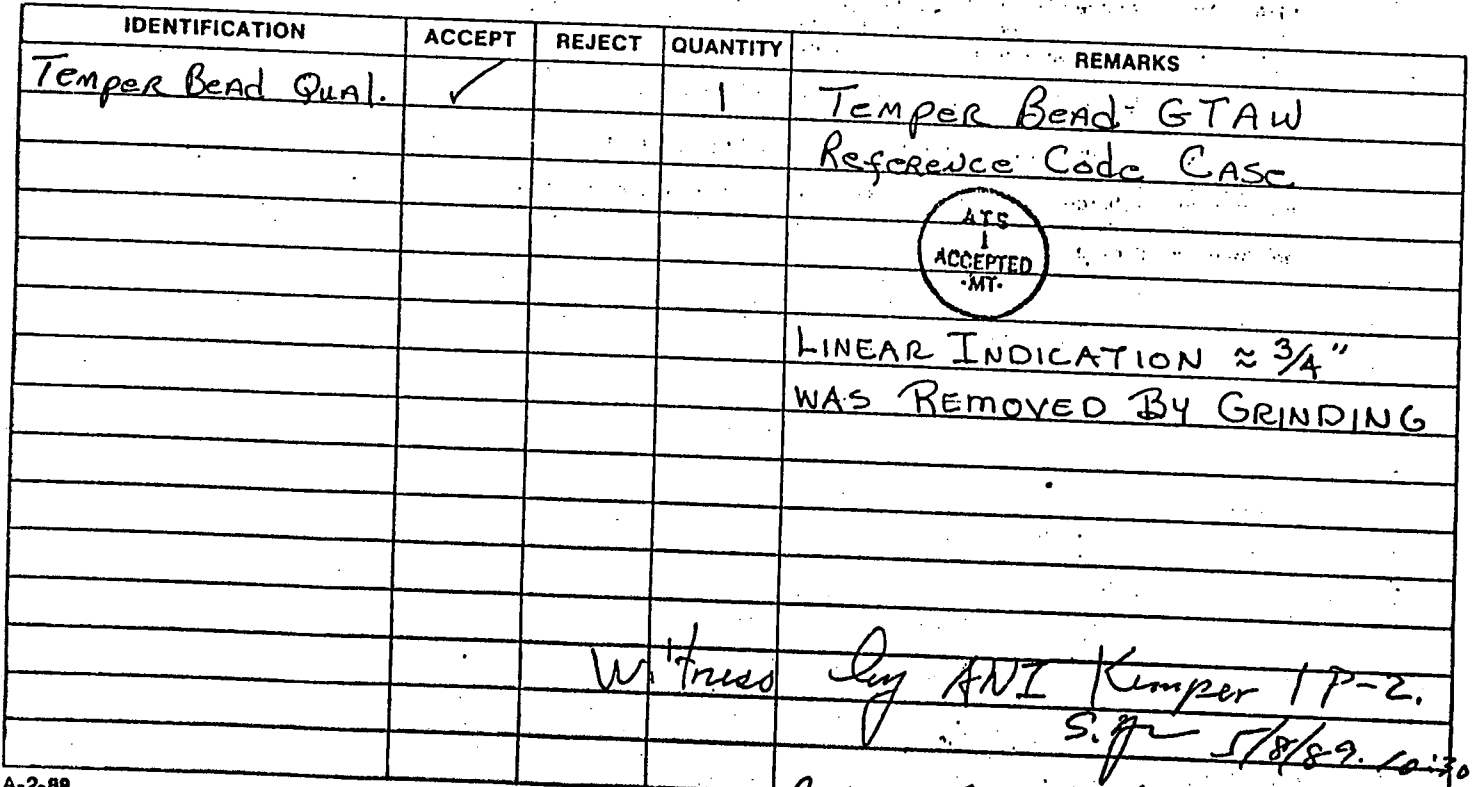 IDENTIFICATION ACCEPT REJECT QUANTITY REMARKS
Temper Bead Qual. ✓ 1 Temper Bead GTAW
Reference Code Case
ATS
1
ACCEPTED
·MT·
LINEAR INDICATION ≈ 3/4"
WAS REMOVED BY GRINDING
Witness by ANI Kemper IP-2.
5/8/89. 10:30
A-2-89